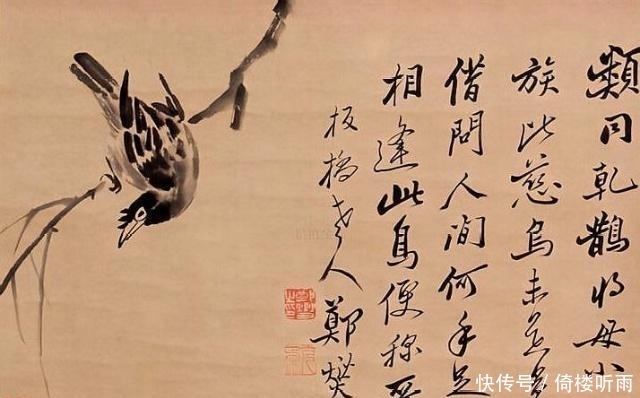 類同乾鵲將毋小
族比慈烏未
借問人間何手足
相逢此鳥便称
板橋老人鄭燮
快传号 / 倚楼听雨